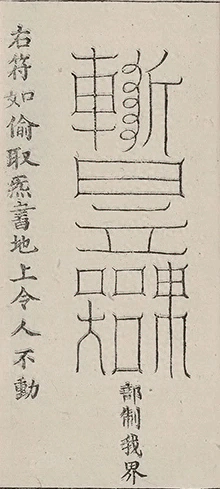 部制我界
右符如偷取炁書地上令人不動